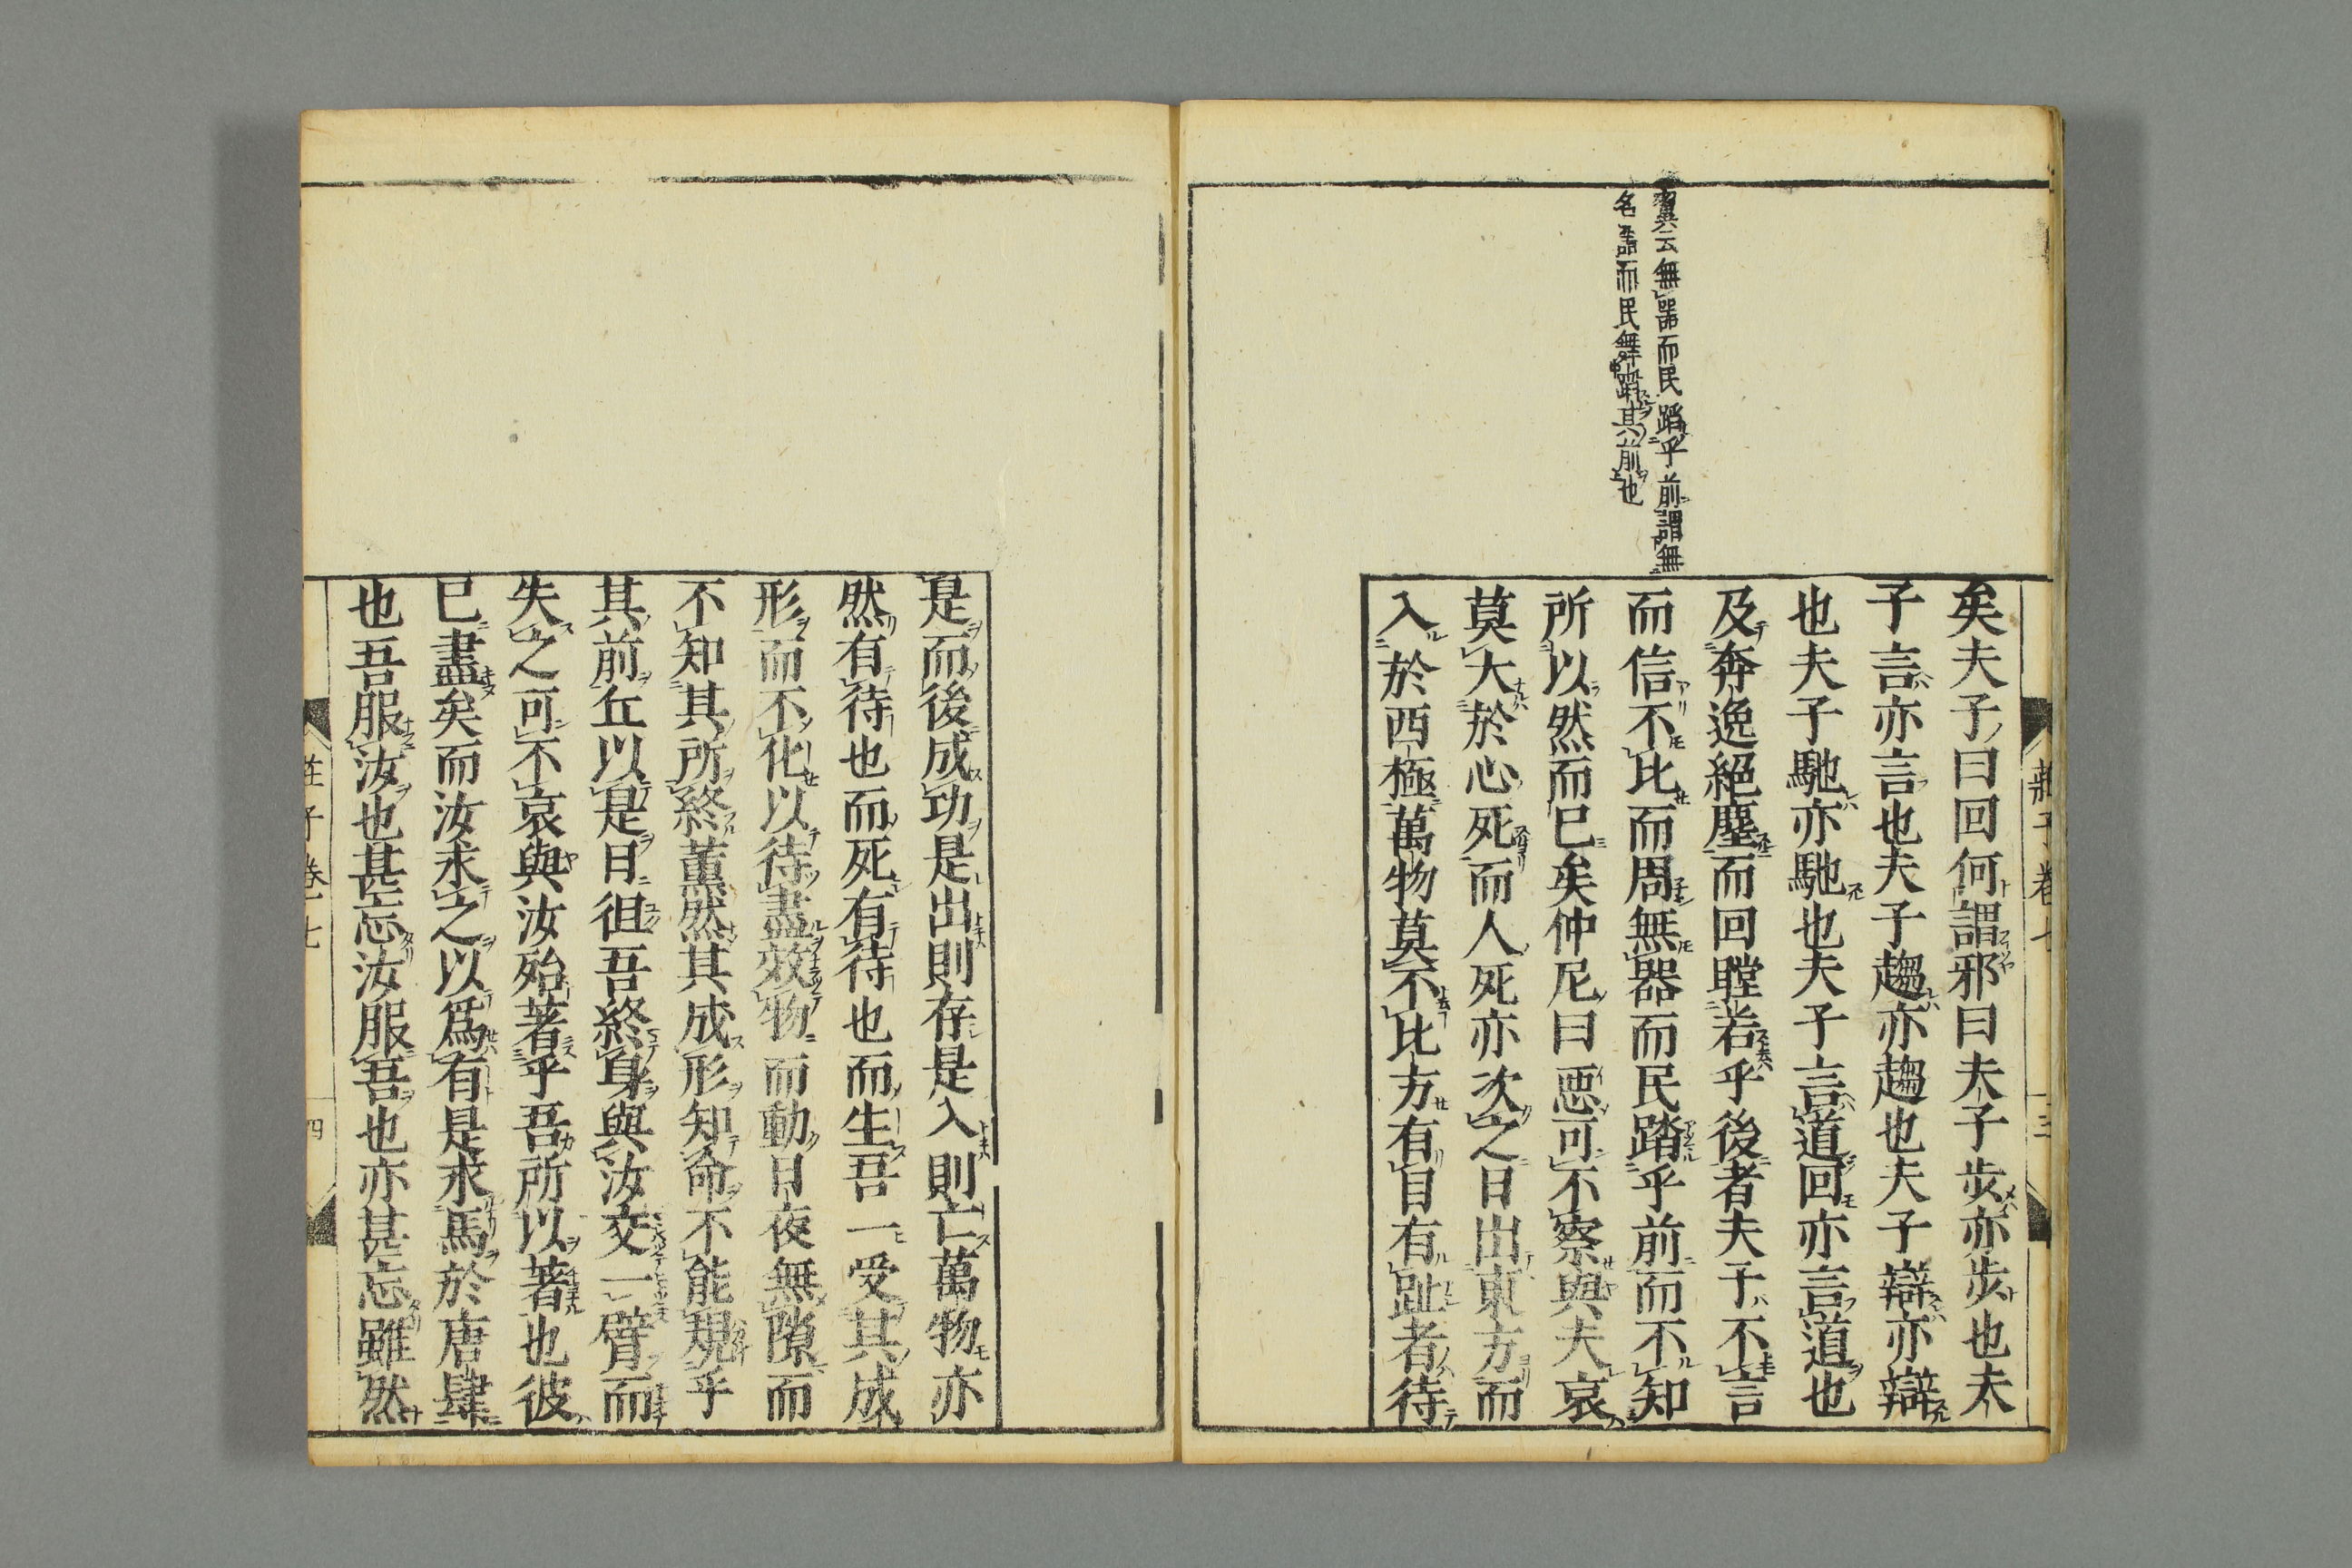 莊子卷七 三
翼云無器而民蹈乎前謂無
名器而民舞蹈其前也
矣夫子曰回何謂邪曰夫子步亦步也夫
子言亦言也夫子趨亦趨也夫子辯亦辯
也夫子馳亦馳也夫子言道回亦言道也
及奔逸絕塵而回瞠若乎後者夫子不言
而信不比而周無器而民踏乎前而不知
所以然而已矣仲尼曰惡可不察與夫哀
莫大於心死而人死亦次之日出東方而
入於西極萬物莫不比方有目有趾者待
是而後成功是出則存是入則亡萬物亦
然有待也而死有待也而生吾一受其成
形而不化以待盡效物而動日夜無隙而
不知其所終薰然其成形知命不能規乎
其前丘以是日徂吾終身與汝交一臂而
失之可不哀與汝殆著乎吾所以著也彼
已盡矣而汝求之以爲有是求馬於唐肆
也吾服汝也甚忘汝服吾也亦甚忘雖然
莊子卷七 四